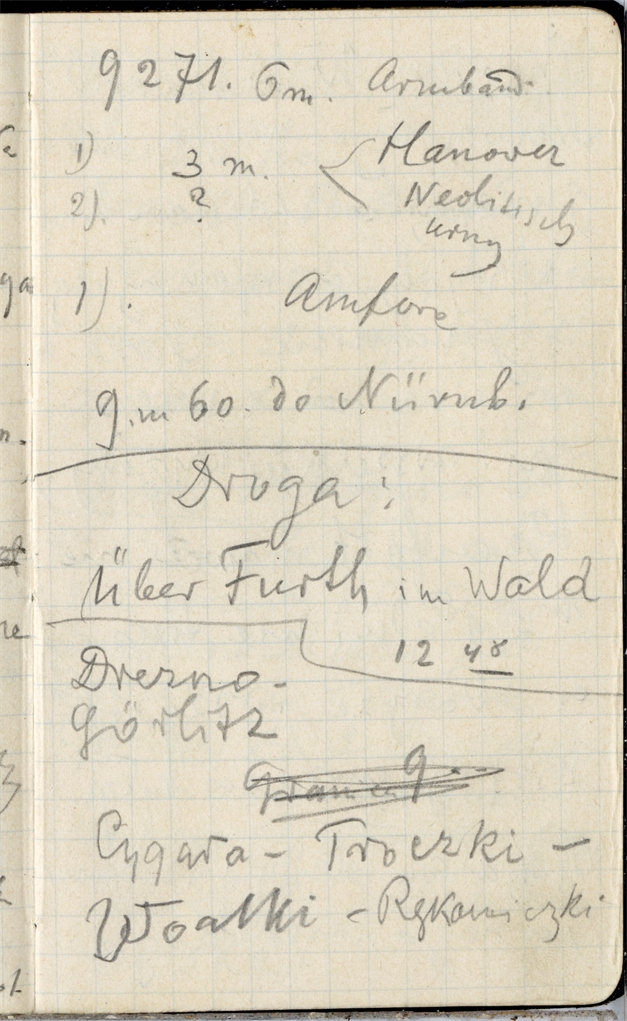 9271. 6 m. Armband
1) 3 m. Hanover
2). ? Neolitisch
urny
1). Amfore
9.m 60. do Nürnb.
Droga:
Über Furth im Wald
12 48
Drezno-
Görlitz
Cygara - Troczki -
Woalki - Rękawiczki